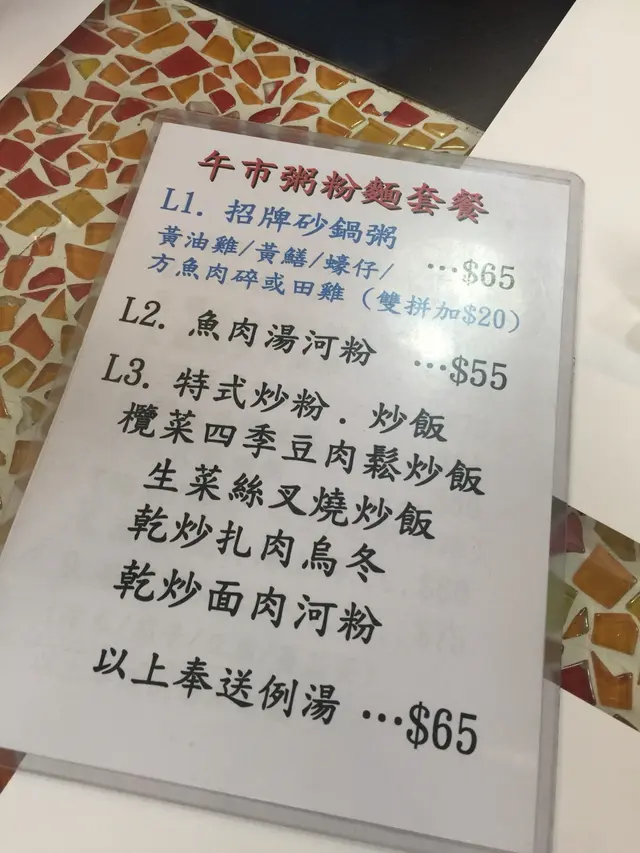 午市粥粉麵套餐
L1. 招牌砂鍋粥
黃油雞/黃鱔/蠔仔/ …$65
方魚肉碎或田雞（雙拼加$20）
L2. 魚肉湯河粉 …$55
L3. 特式炒粉．炒飯
欖菜四季豆肉鬆炒飯
生菜絲叉燒炒飯
乾炒扎肉烏冬
乾炒面肉河粉
以上奉送例湯 …$65